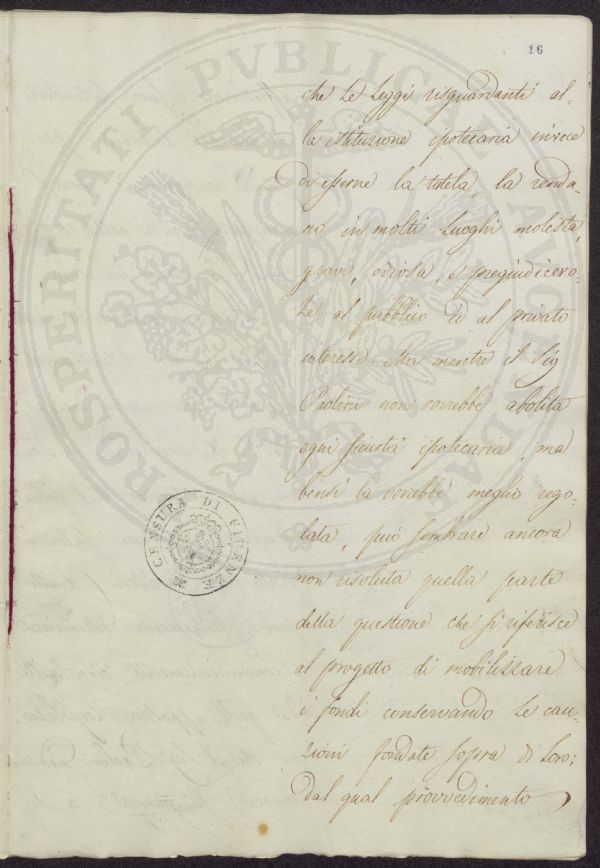 16
che le Leggi risguardanti al-
la istituzione ipotecaria invece
di esserne la tutela, la renda-
no in molti Luoghi molesta,
grave, odiosa, e pregiudicevo-
le al pubblico ed al privato
interesse. Ma mentre il Sig
Paolini non vorrebbe abolita
ogni sicurtà ipotecaria, ma
bensì la vorrebbe meglio rego-
lata, può sembrare ancora
non risoluta quella parte
della questione che si riferisce
al progetto di mobilizzare
i fondi conservando le cau-
zioni fondate sopra di Loro;
dal qual provvedimento
CENSURA DI FIRENZE
PROSPERITATI PUBLICAE